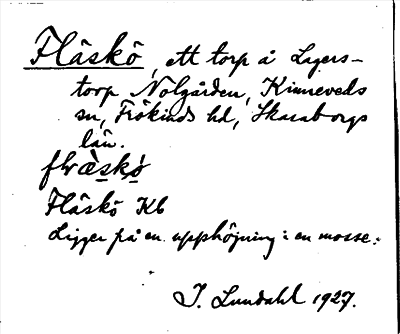 Flåskö, ett torp å Lagers-
torp Nolgården, Kinneveds
sn, Frökinds hd, Skaraborgs
län.
Flåskö Kb
Ligger på en upphöjning i en mosse.
I. Lundahl 1927.